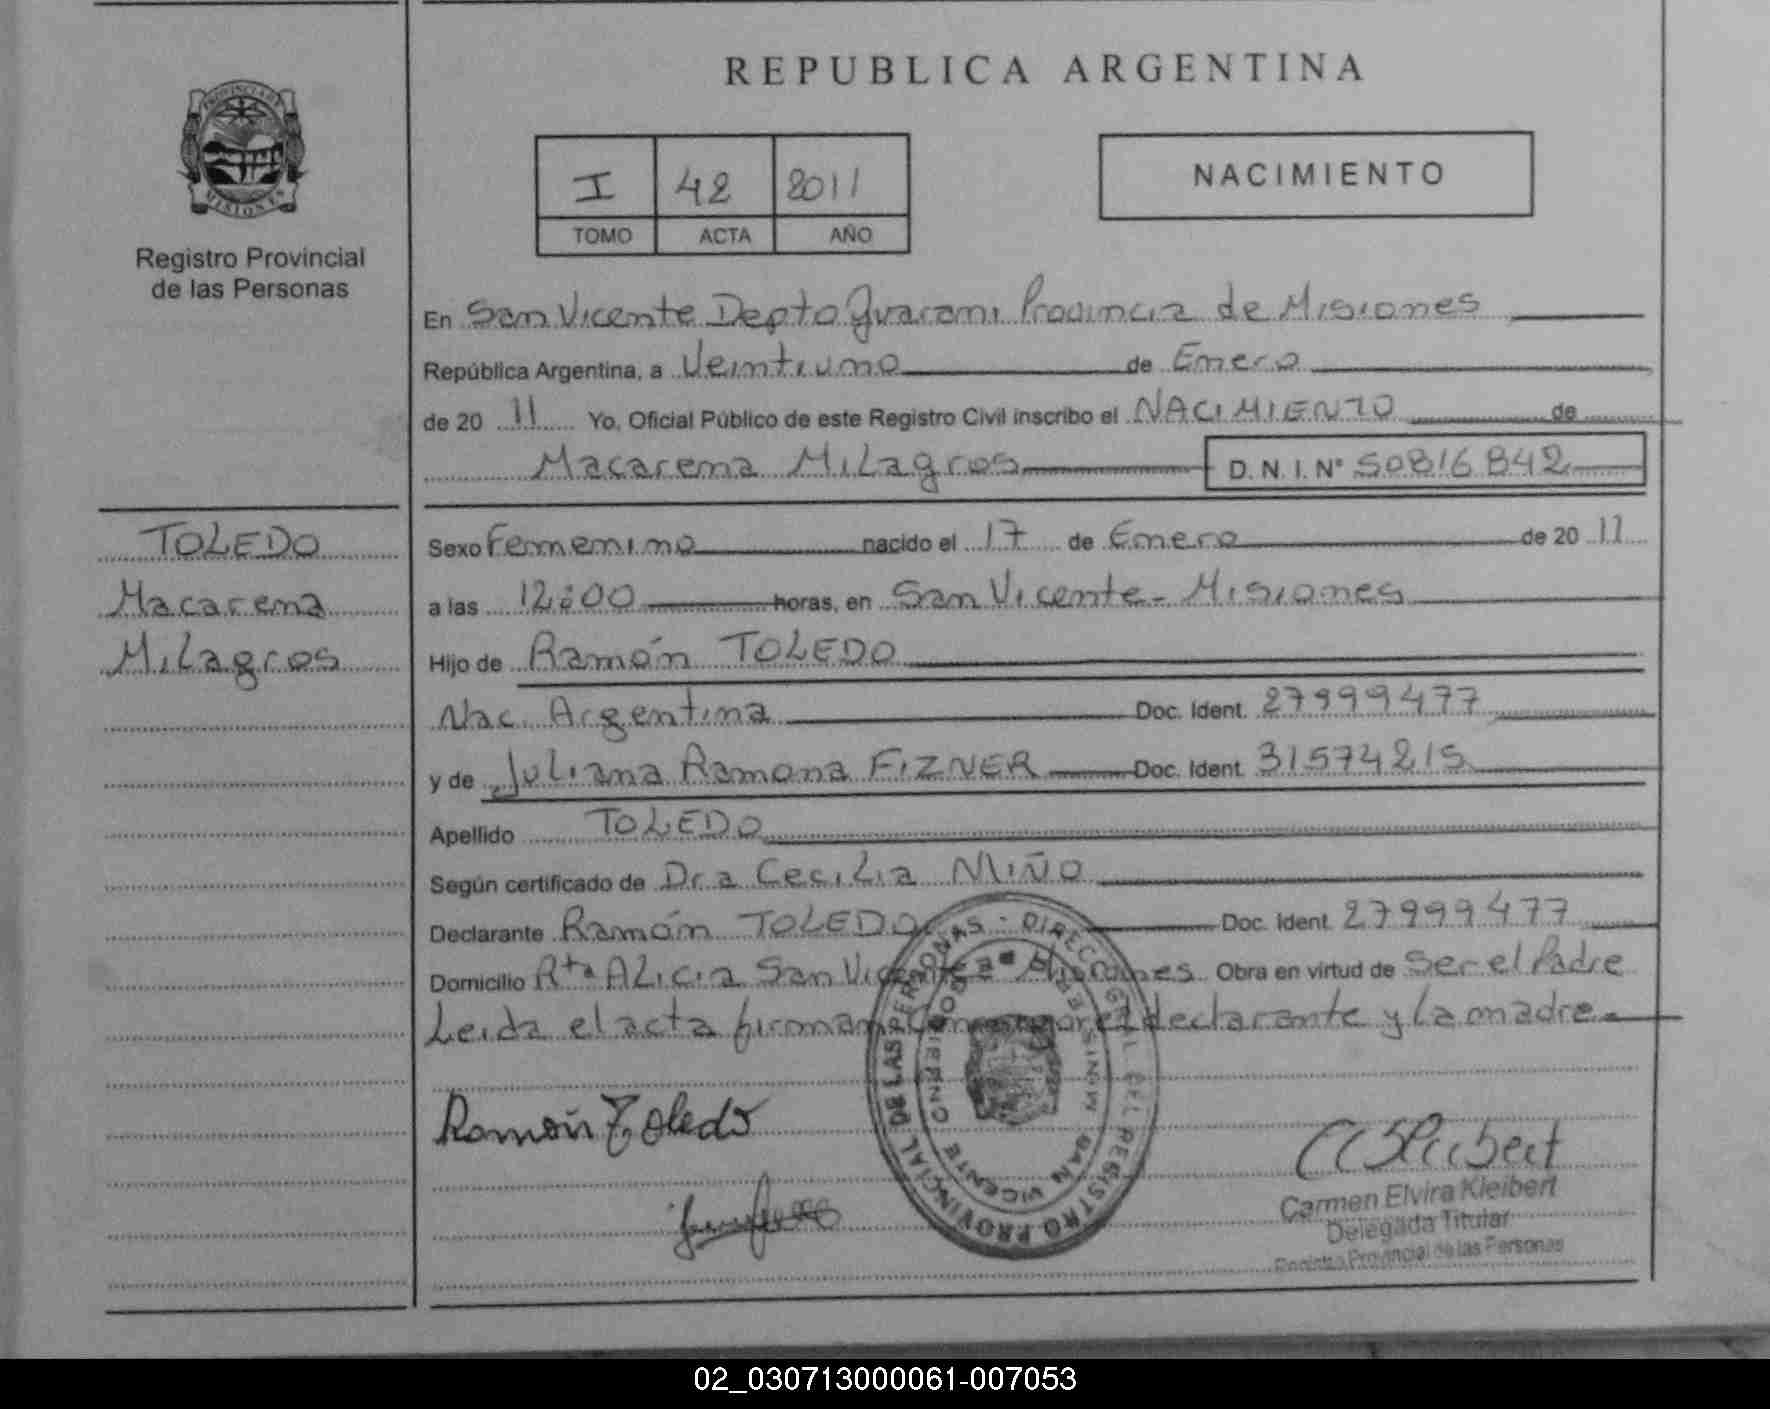 REPUBLICA ARGENTINA
PROVINCIA DE
MISIONES
Registro Provincial
de las Personas
I 42 2011
TOMO ACTA AÑO
NACIMIENTO
En San Vicente Depto Guarani Provincia de Misiones
República Argentina, a Veintiuno de Enero
de 20 11 Yo, Oficial Público de este Registro Civil inscribo el NACIMIENTO de
Macarena Milagros D.N.I. N° 50816842
TOLEDO
Macarena
Milagros
Sexo Femenino nacido el 17 de Enero de 20 11
a las 12:00 horas, en San Vicente - Misiones
Hijo de Ramón TOLEDO
Nac. Argentina Doc. Ident. 27999477
y de Juliana Ramona FIZNER Doc. Ident. 31574215
Apellido TOLEDO
Según certificado de Dra Cecilia MIÑO
Declarante Ramón TOLEDO Doc. Ident. 27999477
Domicilio Rta Alicia San Vicente Misiones Obra en virtud de Ser el Padre
Leida el acta firman el declarante y la madre
Ramón Toledo
Carmen Elvira Kleibert
Delegada Titular
Registro Provincial de las Personas
REGISTRO PROVINCIAL DE LAS PERSONAS - DIRECC. GRAL. DEL
SAN VICENTE
02_030713000061-007053